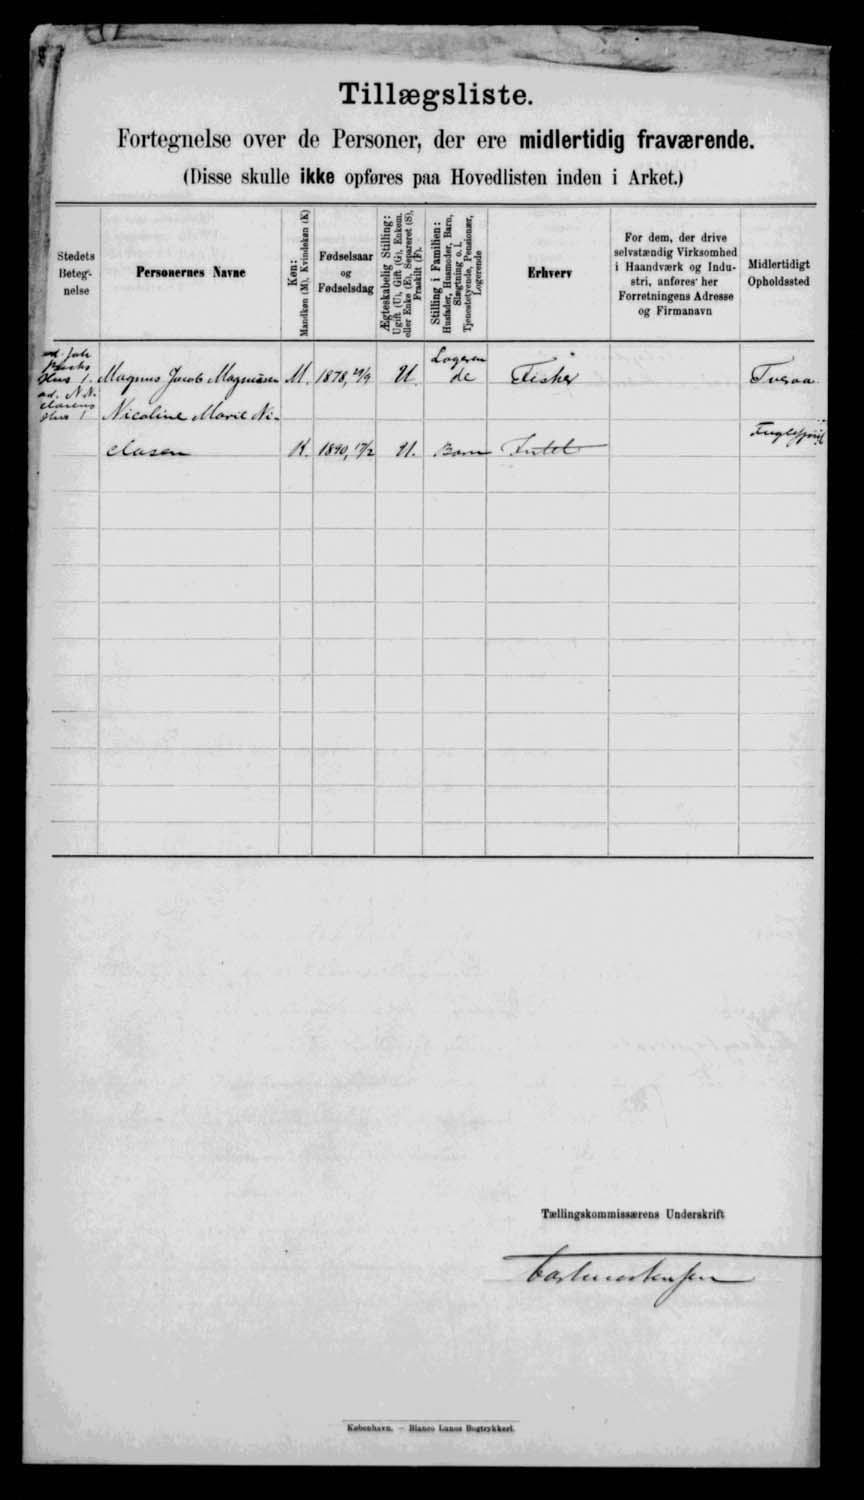 Tillægsliste.
Fortegnelse over de Personer, der ere midlertidig fraværende.
(Disse skulle ikke opføres paa Hovedlisten inden i Arket.)
Stedets
Beteg-
nelse
Personernes Navne
Køn:
Mandkøn (M), Kvindekøn (K)
Fødselsaar
og
Fødselsdag
Ægteskabelig Stilling:
Ugift (U), Gift (G), Enkem.
eller Enke (E), Separeret (S),
Fraskilt (F).
Stilling i Familien:
Husfader, Husmoder, Barn,
Slægtning o. l.
Tjenestetyende, Pensionær,
Logerende
Erhverv
For dem, der drive
selvstændig Virksomhed
i Haandværk og Indu-
stri, anføres her
Forretningens Adresse
og Firmanavn
Midlertidigt
Opholdssted
Hus 1.
Magnus Jacob Magnusen M. 1878, U. Logeren
de Fisker
ad. N. N.
Hus 1
Nicoline Marie Ni-
clasen K. 1890, 17/2 U. Barn Intet
Tællingskommissærens Underskrift
København. — Bianco Lunos Bogtrykkeri.